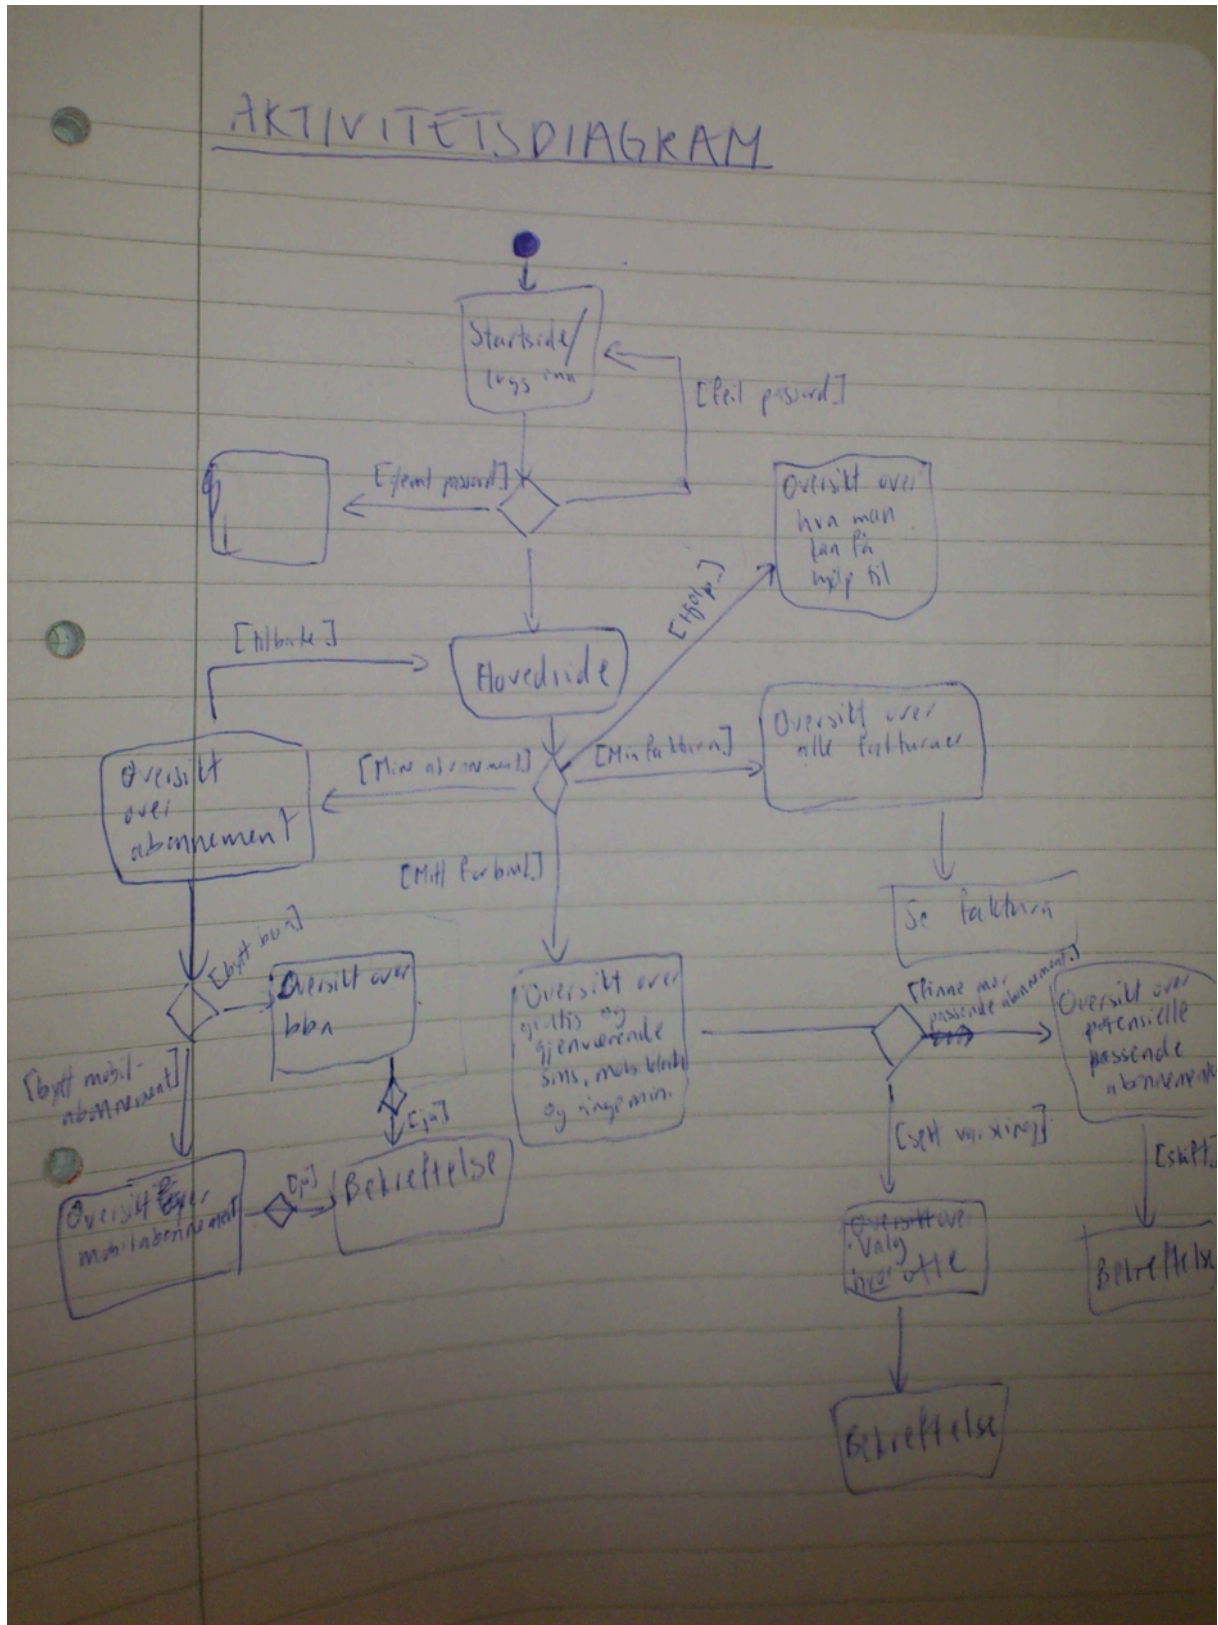 AKTIVITETSDIAGRAM
Startside/
logg inn
[feil passord]
[glemt passord]
Oversikt over
hva man
kan få
hjelp til
[Hjelp]
[tilbake]
Hovedside
Oversikt over
alle fakturaer
[Min faktura]
[Mine abonnement]
Oversikt
over
abonnement
[Mitt forbruk]
Se faktura
[bytt bbn]
Oversikt over
bbn
Oversikt over
gratis og
gjenværende
sms,
og ringemin.
[finne mer
passende abonnement]
Oversikt over
potensielle
passende
abonnement
[bytt mobil-
abonnement]
[ja]
[sett varsling]
[skift]
Oversikt over
mobilabonnement
[ja]
Bekreftelse
Oversikt over
valg
hvor ofte
Bekreftelse
Bekreftelse